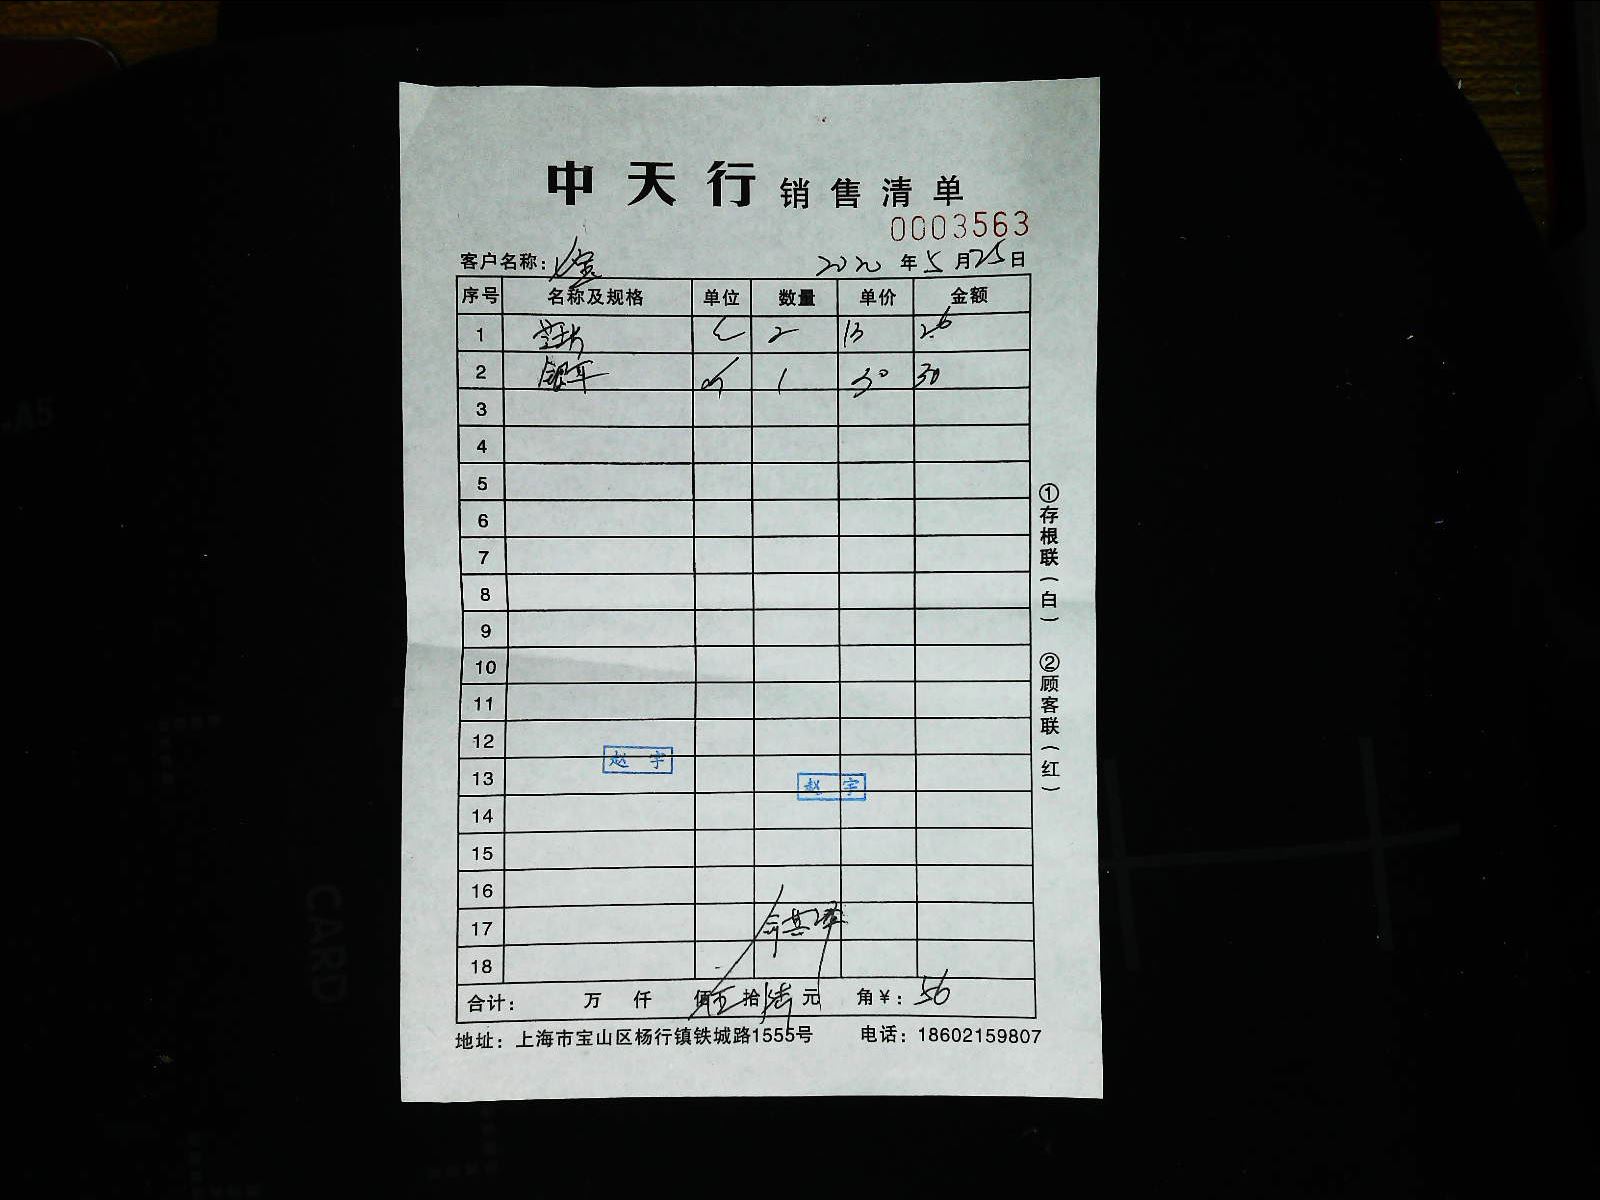 中天行 销售清单
0003563
客户名称： 2020年5月25日
序号 名称及规格 单位 数量 单价 金额
1 2 13 26
2 银耳 1 30 30
3
4
5
6
7
8
9
10
11
12
赵宇
13
赵宇
14
15
16
17
18
合计： 万 仟 佰伍拾陆元 角￥：56
地址：上海市宝山区杨行镇铁城路1555号 电话：18602159807
①存根联（白） ②顾客联（红）
A5
CARD